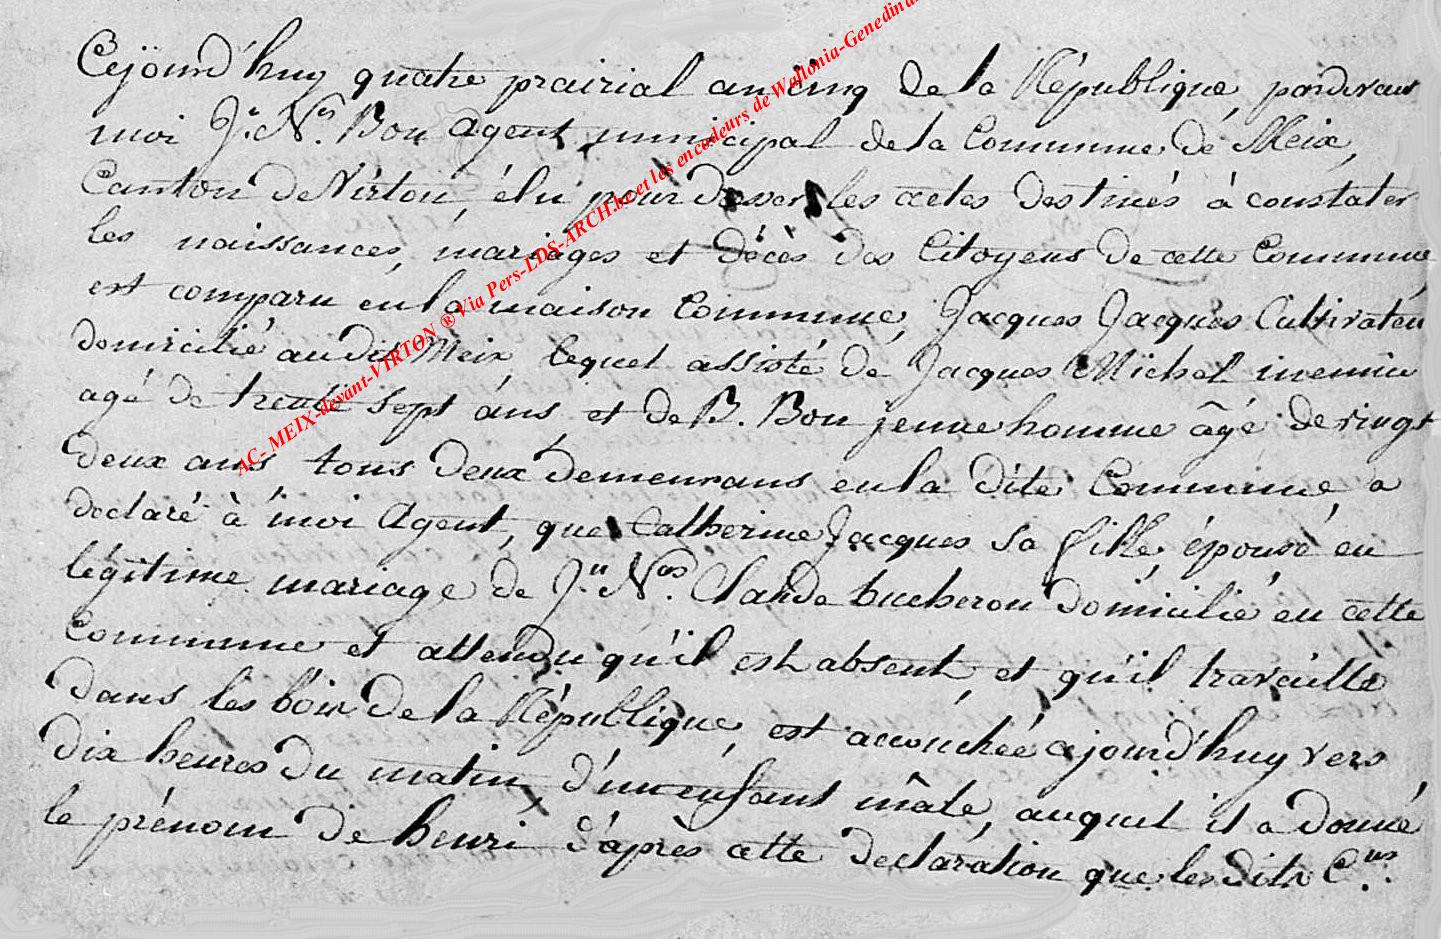 Cejourd'huy quatre prairial an cinq de la République, pardevant
moi J.n N.s Bon agent municipal de la Commune de Meix,
Canton de Virton, élu pour dresser les actes destinés à constater
les naissances, mariages et décès des Citoyens de cette Commune,
est comparu en la maison Commune, Jacques Jacques Cultivateur
domicilié audit Meix, lequel assisté de Jacques Michel
agé de trente sept áns et de B. Bon jeune homme âgé de vingt
deux ans tous deux demeurans en la dite Commune, a
declaré à moi Agent, que Catherine Jacques sa fille, épouse en
légitime mariage de J.n N.as Claude bucheron domicilié en cette
Commune et attendu qu'il est absent, et qu'il travaille
dans les bois de la République, est accouchée cejourd'huy vers
dix heures du matin, d'un enfant mâle, auquel il a donné
le prénom de henri d'après cette declaration que les dits C.ns
AC- MEIX-devant-VIRTON ® Via Pers-LDS-ARCH.be et les encodeurs de Wallonia-Genedinan